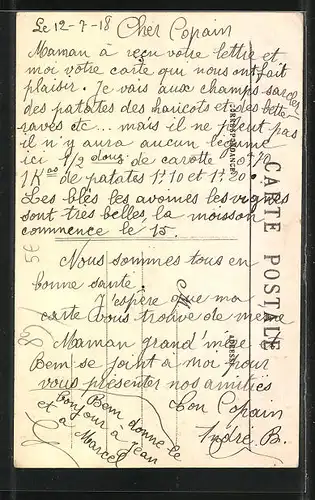 Le 12-7-18 Cher Copain
Maman à reçu votre lettre et
moi votre carte qui nous ont fait
plaisir. Je vais aux champs sarcler
des patates des haricots et des bette
raves etc... mais il ne pleut pas
il n'y aura aucun legume
ici 1/2 douz de carotte 0f70
1 Kgo de patates 1f.10 et 1f.20.
Les blés les avoines les vignes
sont tres belles, la moisson
commence le 15.
Nous sommes tous en
bonne santé.
J'espère que ma
carte vous trouve de même
Maman grand'mère
Bem se joint à moi pour
vous présenter nos amitiés
Ton Copain
André B.
Bem donne le
bonjour à Jean
et à Marcel
CARTE POSTALE
CORRESPONDANCE
ADRESSE